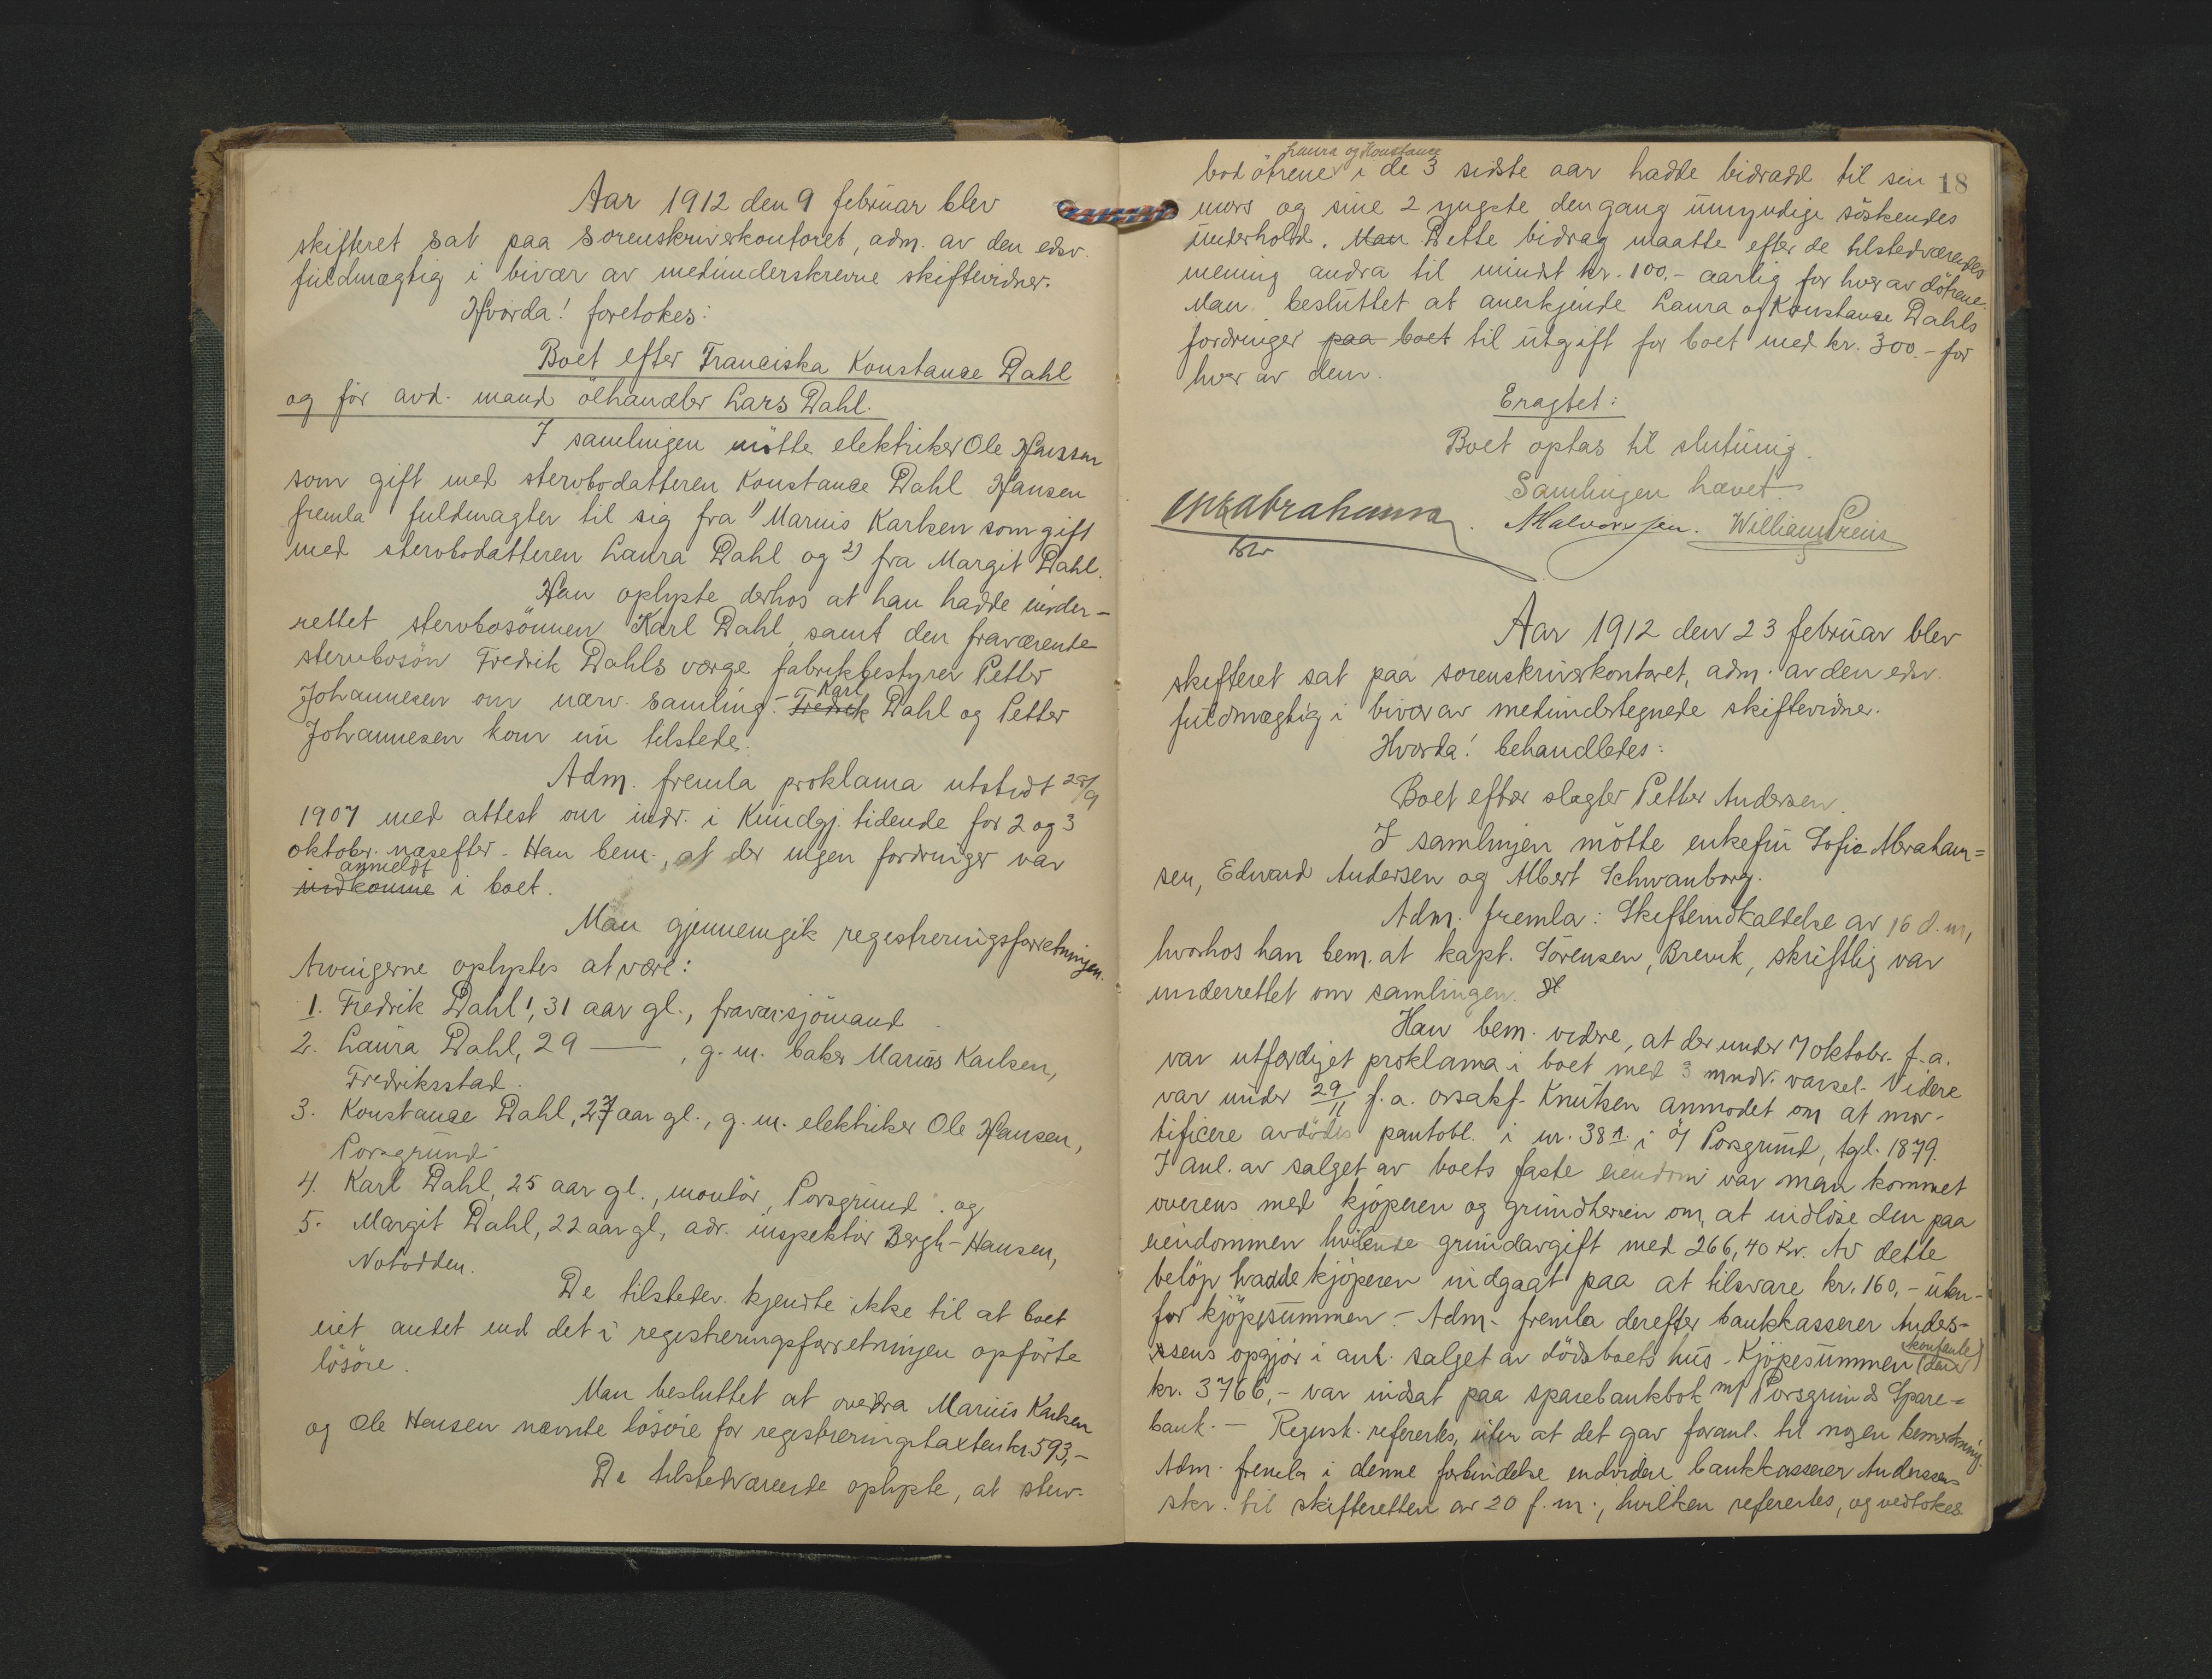 Aar 1912 den 9 februar blev
skifteret sat paa sorenskriverkontoret, adm. av den edsv.
fuldmægtig i bivær av medunderskrevne skiftevidner.
Hvorda! foretokes:
Boet efter Franciska Konstance Dahl
og før avd. mand ölhandler Lars Dahl.
I samlingen mötte elektriker Ole Hansen
som gift med stervbodatteren Konstance Dahl Hansen
fremla fuldmagter til sig fra 1) Marius Karlsen som gift
med stervbodatteren Laura Dahl og 2) fra Margit Dahl.
Han oplyste derhos at han hadde under-
rettet stervbosönnen Karl Dahl, samt den fraværende
stervbosön Fredrik Dahls værge fabrikbestyrer Petter
Johannesen om nærv. samling. - Fredrik Karl Dahl og Petter
Johannesen kom nu tilstede.
Adm. fremla proklama utstedt 28/9
1907 med attest om indr. i Kundgj. tidende for 2 og 3
oktober næstefter. Han bem., at der ingen fordringer var
indkomne anmeldt i boet.
Man gjennemgik registreringsforretningen.
Arvingerne oplystes at være:
1. Fredrik Dahl, 31 aar gl., fravær. sjömand
2. Laura Dahl, 29 — , g. m. baker Marius Karlsen,
Fredriksstad.
3. Konstance Dahl, 27 aar gl., g. m. elektriker Ole Hansen,
Porsgrund
4. Karl Dahl, 25 aar gl., montör, Porsgrund. og
5. Margit Dahl, 22 aar gl., adr. inspektör Bergh-Hansen,
Notodden.
De tilstedev. kjendte ikke til at boet
eiet andet end det i registreringsforretningen opförte
lösöre.
Man besluttet at overdra Marius Karlsen
og Ole Hansen nævnte lösöre for registreringstaxten kr. 593,-
De tilstedværende oplyste, at sterv-
18
bodötrene Laura og Konstance i de 3 sidste aar hadde bidradd til sin
mors og sine 2 yngste dengang umyndige söskendes
underhold. Man Dette bidrag maatte efter de tilstedværendes
mening andra til mindst kr. 100,- aarlig for hver av dötrene.
Man besluttet at anerkjende Laura og Konstance Dahls
fordringer paa boet til utgift for boet med kr. 300.- for
hver av dem.
Eragtet:
Boet optas til slutning.
Samlingen hævet.
Abrahams. Halvorsen. William Preus
Aar 1912 den 23 februar blev
skifteret sat paa sorenskriverkontoret, adm. av den edsv.
fuldmægtig i bivær av medundertegnede skiftevidner.
Hvorda! behandledes:
Boet efter slagter Petter Andersen.
I samlingen mötte enkefru Sofie Abraham=
sen, Edvard Andersen og Albert Schwanborg.
Adm. fremla: Skifteindkaldelse av 16 d. m.,
hvorhos han bem. at kapt. Sörensen, Brevik, skriftlig var
underrettet om samlingen.
Han bem. videre, at der under 7 oktobr. f. a.
var utfærdiget proklama i boet med 3 mndr. varsel. Videre
var under 29/11 f. a. orsakf. Knutsen anmodet om at mor-
tificere avdödes pantobl. i nr. 38 i Porsgrund, tgl. 1879.
I anl. av salget av boets faste eiendom var man kommet
overens med kjöperen og grundherren om, at indlöse den paa
eiendommen hvilende grundavgift med 266,40 Kr. Av dette
belöp hadde kjöperen indgaat paa at tilsvare kr. 160,- uten-
for kjöpesummen. - Adm. fremla derefter bankkasserer Anders-
sens opgjör i anl. salget av dödsboets hus. Kjöpesummen (den kontante)
kr. 3766,- var indsat paa sparebankbok m/ Porsgrunds Spare=
bank. — Regnsk. refereres, uten at det gav foranl. til nogen bemerkning.
Adm. fremla i denne forbindelse endvidere bankkasserer Anderssens
skr. til skifteretten av 20 f. m., hvilken refereres, og vedtokes